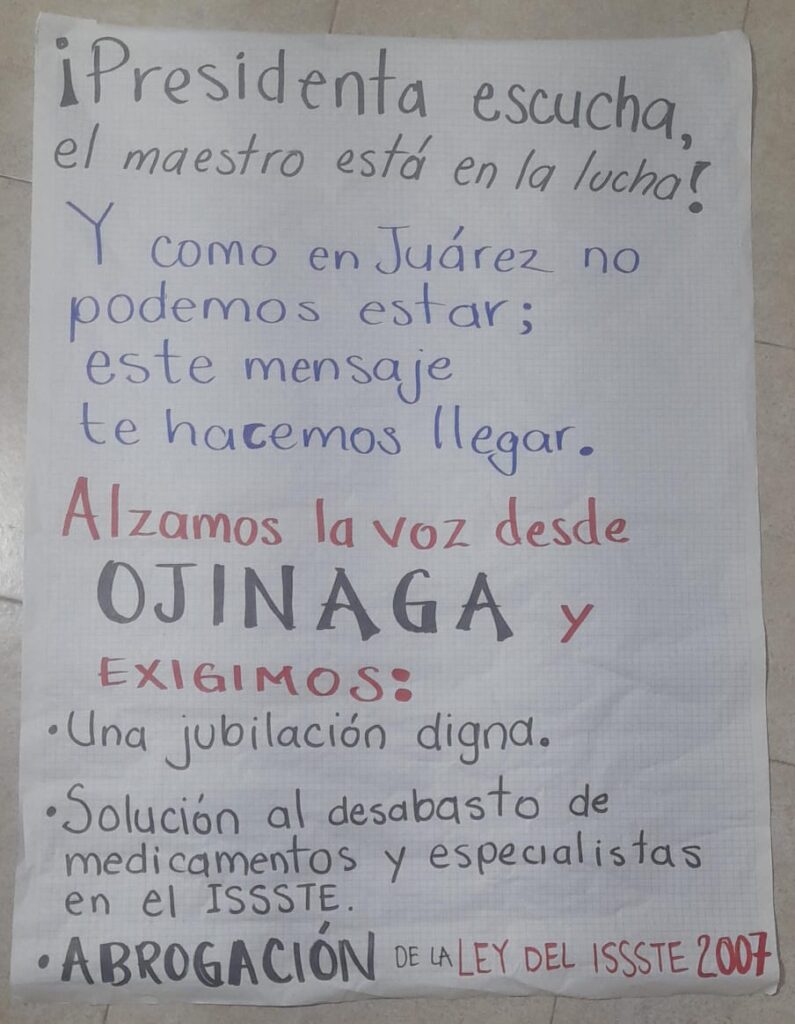 ¡Presidenta escucha,
el maestro está en la lucha!
Y como en Juárez no
podemos estar;
este mensaje
te hacemos llegar.
Alzamos la voz desde
OJINAGA y
EXIGIMOS:
• Una jubilación digna.
• Solución al desabasto de
medicamentos y especialistas
en el ISSSTE.
• ABROGACIÓN DE LA LEY DEL ISSSTE 2007